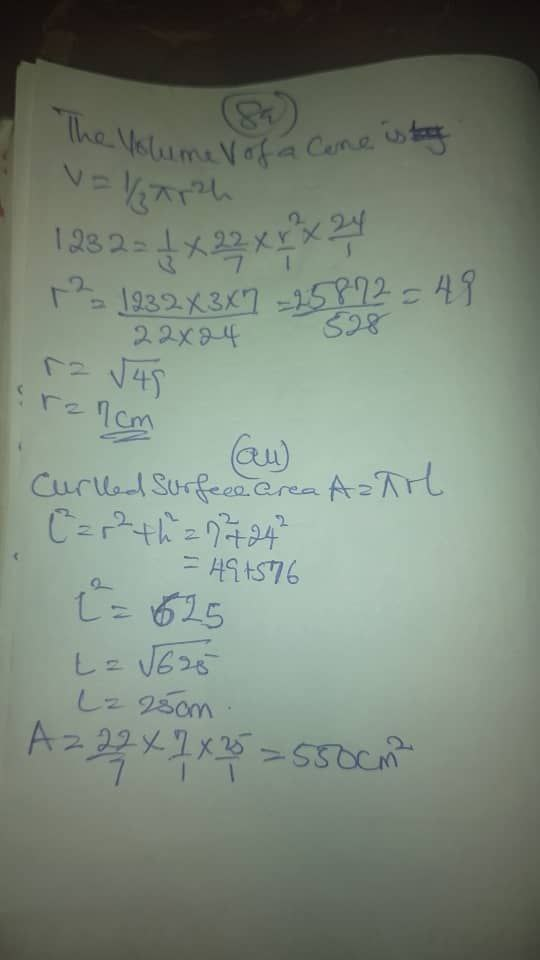 (8a)
The Volume V of a Cone is
V = 1/3 πr²h
1232 = 1/3 × 22/7 × r²/1 × 24/1
r² = 1232×3×7/22×24 = 25872/528 = 49
r = √49
r = 7cm
(aii)
Curved Surface area A = πrl
l² = r² + h² = 7² + 24²
= 49+576
l² = 625
L = √625
L = 25cm.
A = 22/7 × 7/1 × 25/1 = 550cm²